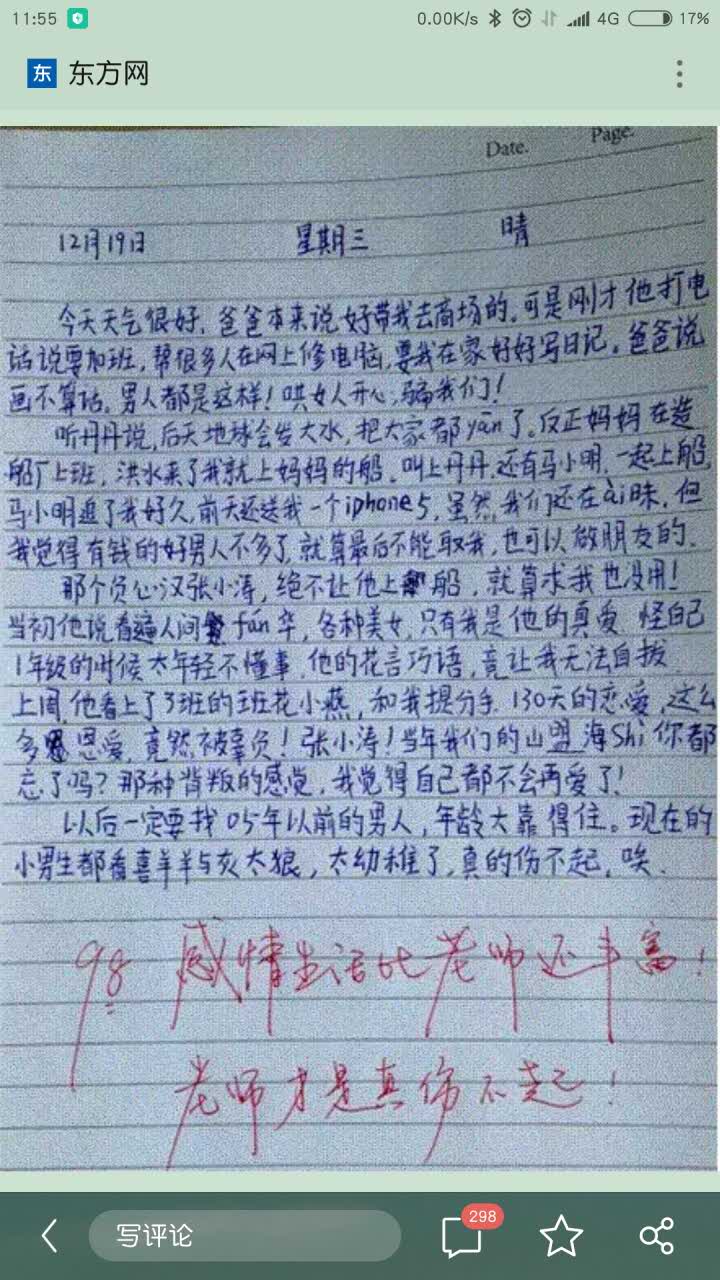 11:55
0.00K/s 4G 17%
东 东方网
Date. Page.
12月19日 星期三 晴
今天天气很好,爸爸本来说好带我去商场的,可是刚才他打电
话说要加班,帮很多人在网上修电脑,要我在家好好写日记。爸爸说
画不算话,男人都是这样!哄女人开心,骗我们!
听丹丹说,后天地球会发大水,把大家都yān了。反正妈妈在造
船厂上班,洪水来了我就上妈妈的船。叫上丹丹,还有马小明,一起上船,
马小明追了我好久,前天还送我一个iphone5,虽然,我们还在ài昧,但
我觉得有钱的好男人不多了,就算最后不能取我,也可以做朋友的.
那个负心汉张小涛,绝不让他上船,就算求我也没用!
当初他说看遍人间fán华,各种美女,只有我是他的真爱 怪自己
1年级的时候太年轻不懂事,他的花言巧语,竟让我无法自拔.
上周,他看上了3班的班花小燕,和我提分手.130天的恋爱,这么
多恩爱,竟然被辜负!张小涛!当年我们的山盟海Shì你都
忘了吗?那种背叛的感觉,我觉得自己都不会再爱了!
以后一定要找05年以前的男人,年龄大靠得住。现在的
小男生都看喜羊羊与灰太狼,太幼稚了,真的伤不起,唉.
98 感情生活比老师还丰富!
老师才是真伤不起!
写评论 298